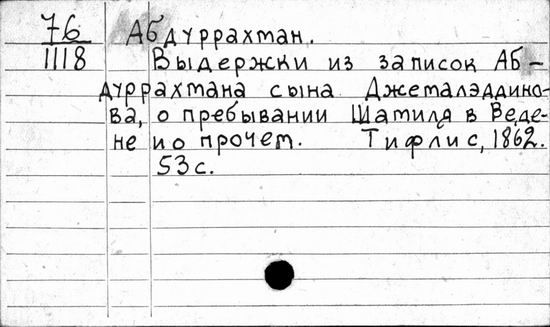 76 Абдуррахман.
1118 Выдержки из записок Аб-
дуррахмана сына Джемалэддино-
ва, о пребывании Шамиля в Веде-
не и о прочем. Тифлис, 1862.
53 с.